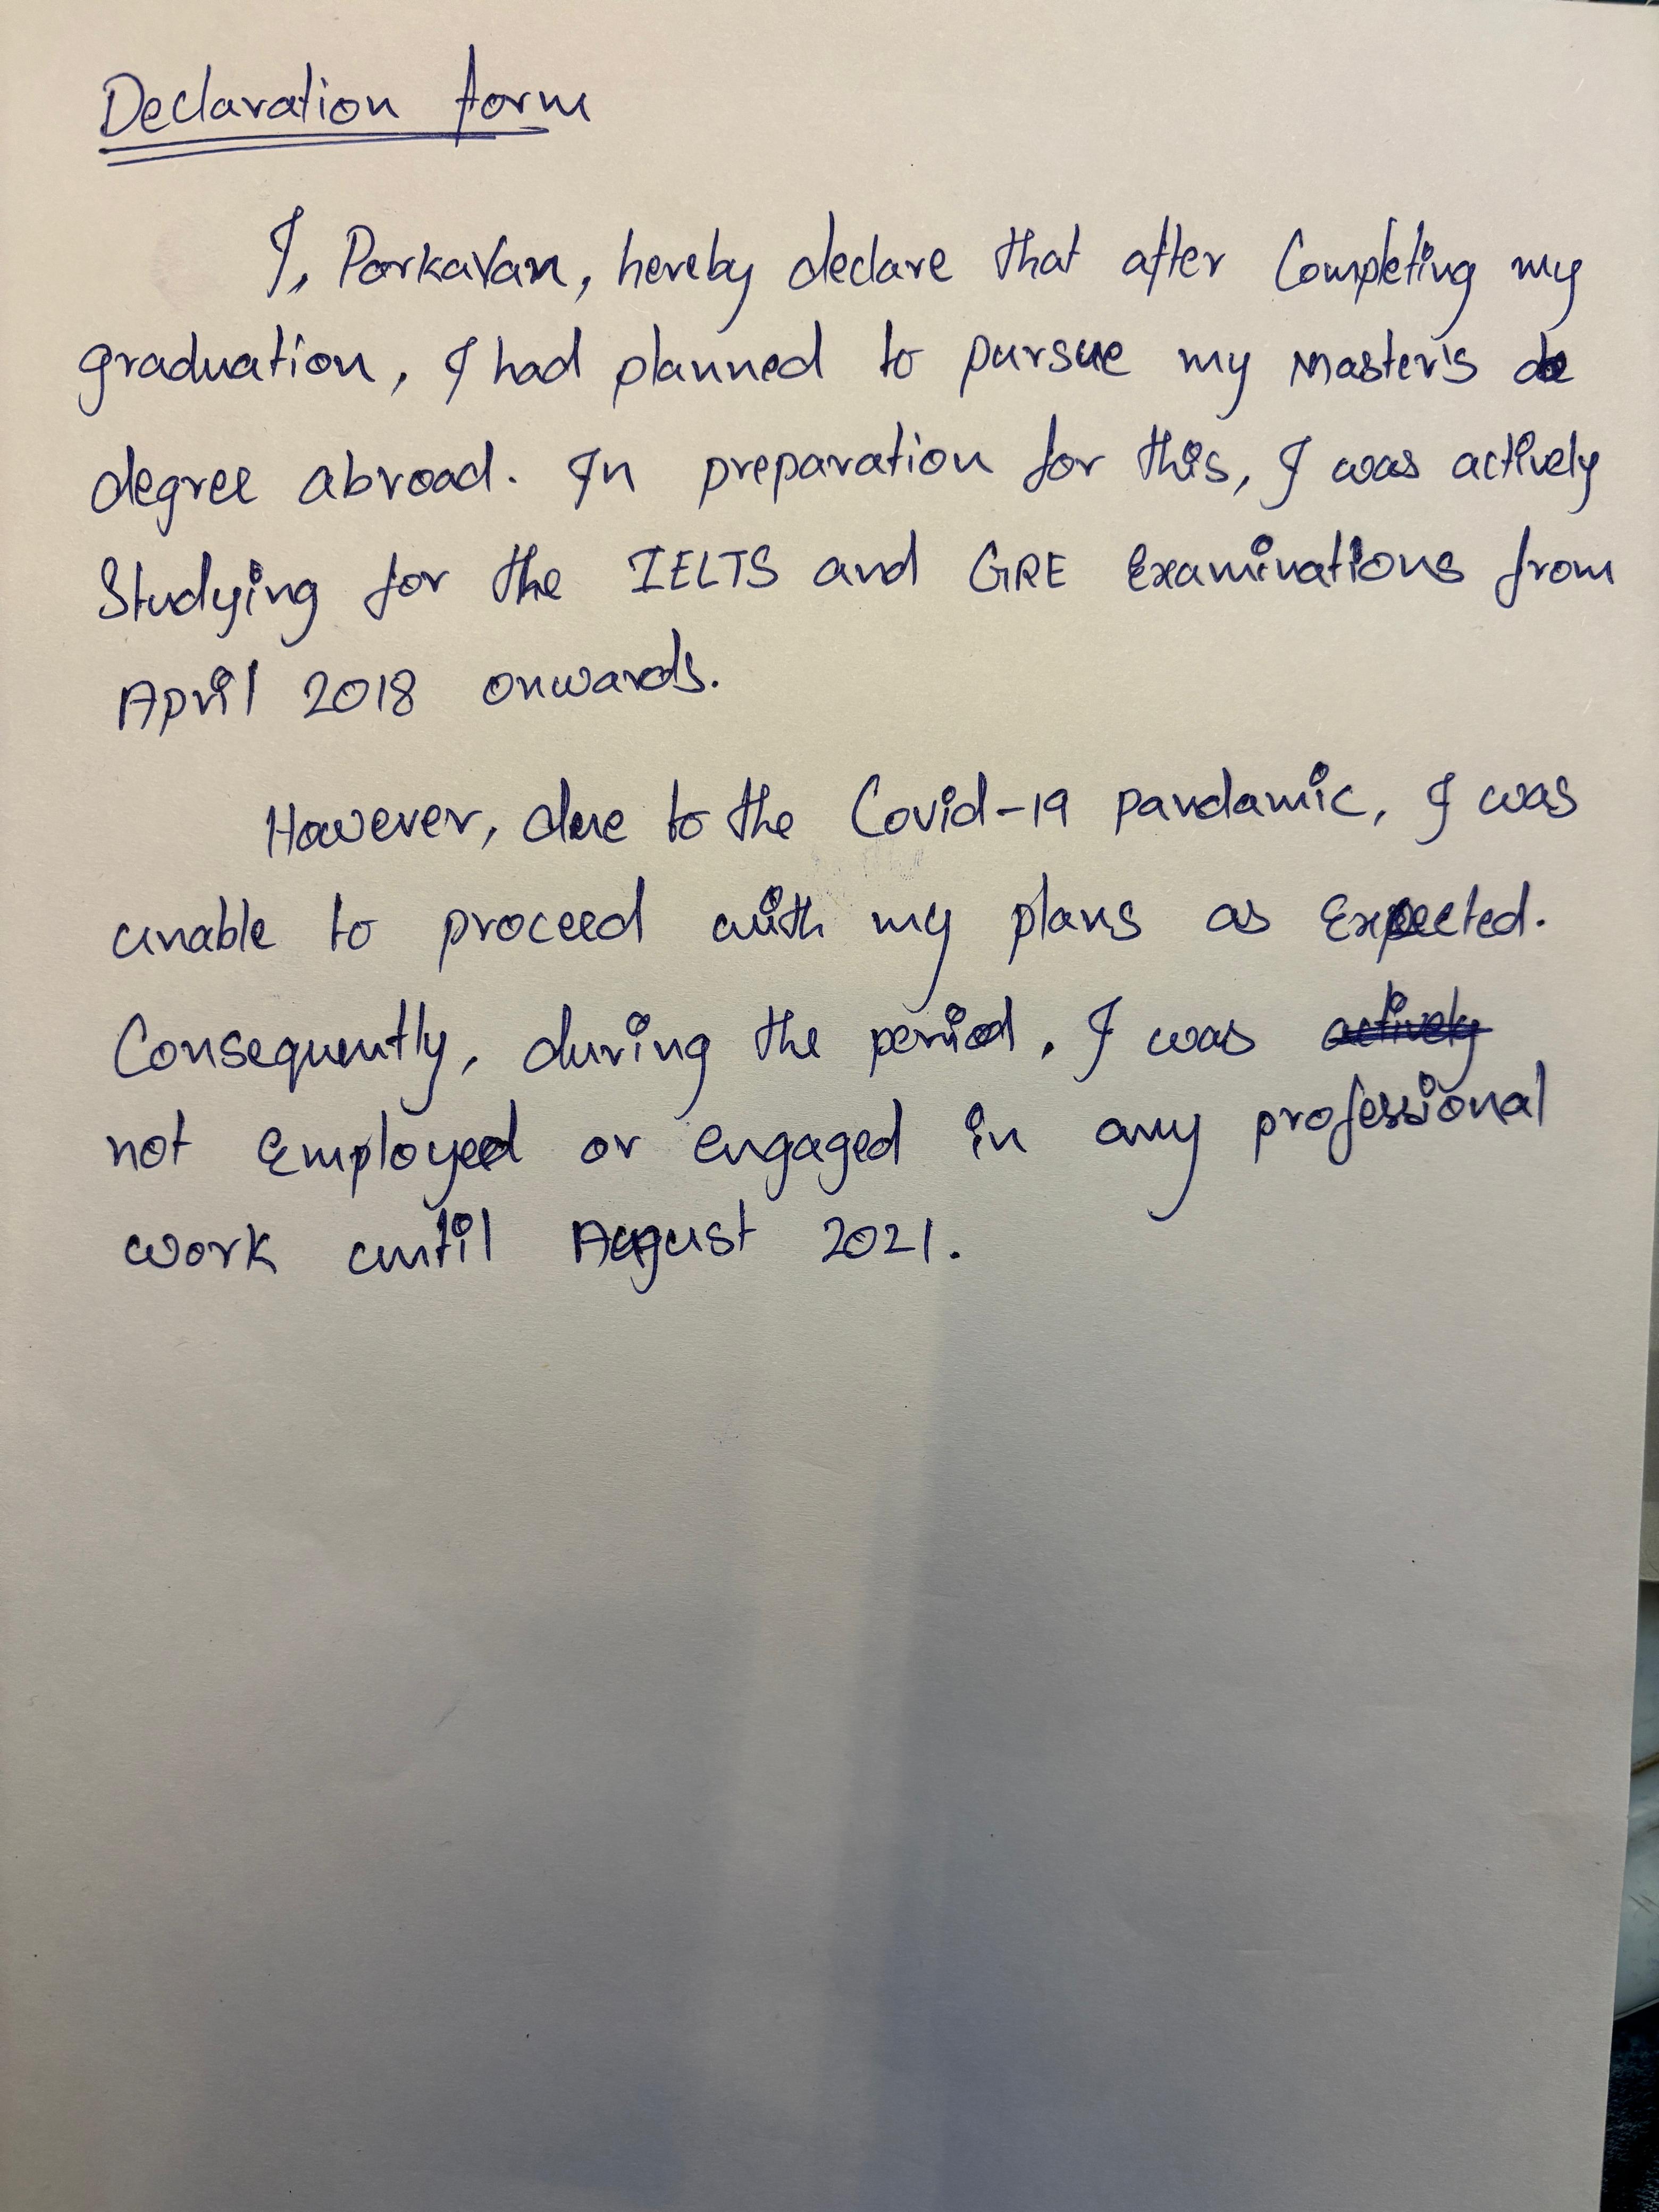 Declaration form
I, Parkavan, hereby declare that after Completing my
graduation, I had planned to pursue my Master's de
degree abroad. In preparation for this, I was actively
Studying for the IELTS and GRE Examinations from
April 2018 onwards.
However, due to the Covid-19 pandamic, I was
unable to proceed with my plans as Expected.
Consequently, during the period, I was actively
not Employed or engaged in any professional
work until August 2021.